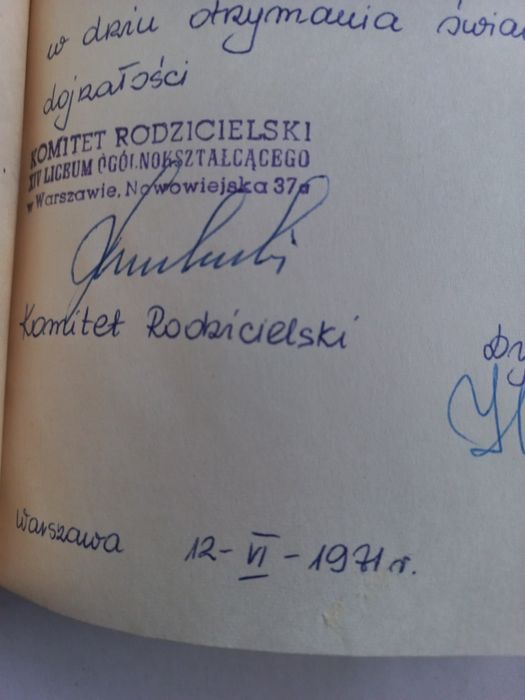 w dniu otrzymania świa
dojrzałości
KOMITET RODZICIELSKI
XIV LICEUM OGÓLNOKSZTAŁCĄCEGO
w Warszawie, Nowowiejska 37a
Komitet Rodzicielski
Dy
Warszawa 12-VI-1971 r.